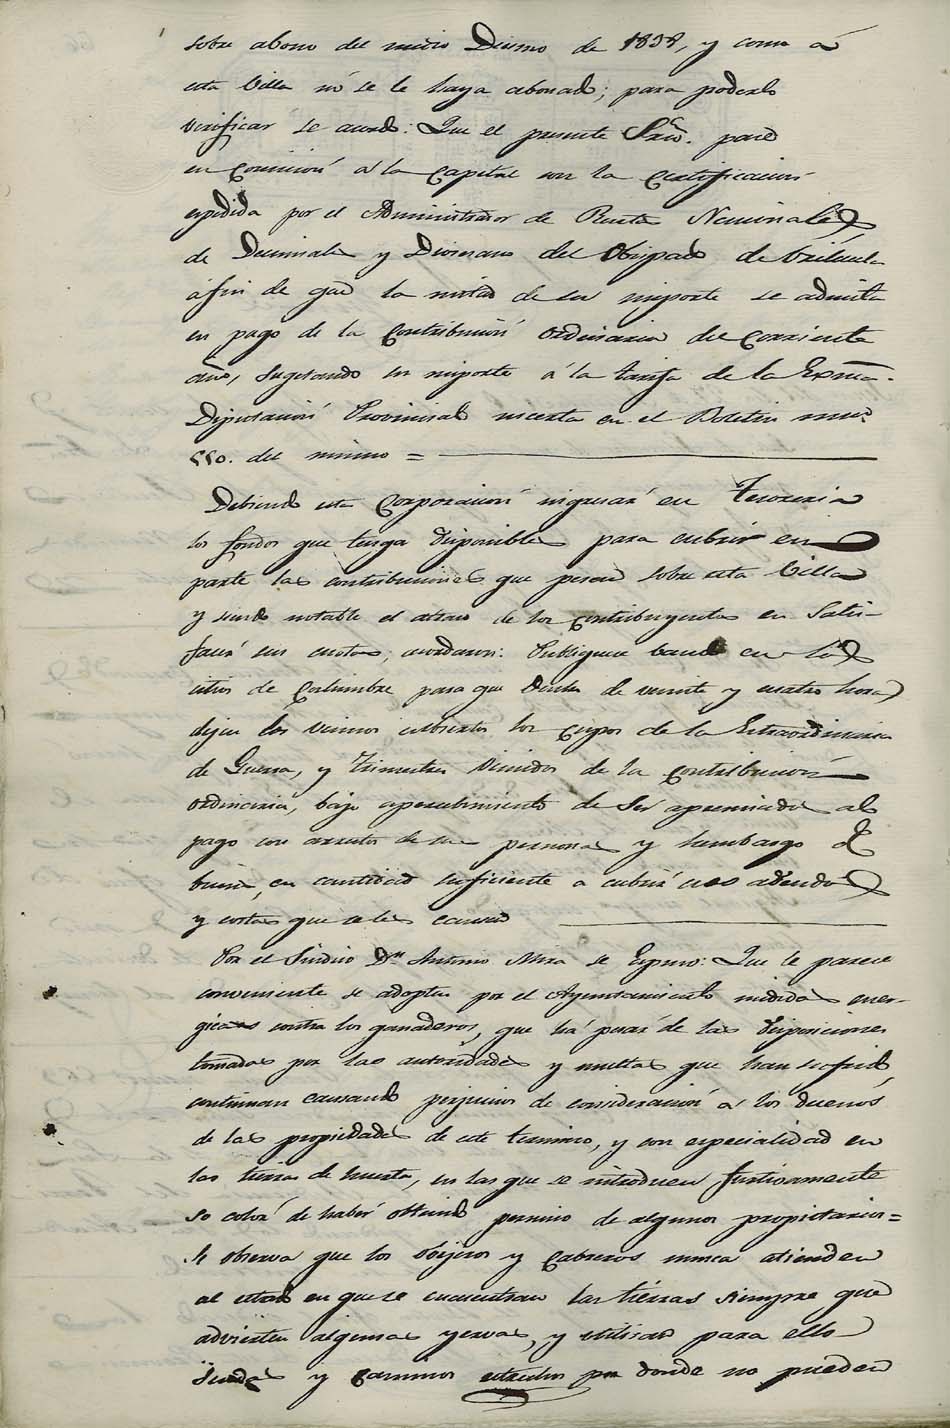 sobre abono del medio Diezmo de 1838, y como á
esta Villa nó se le haya abonado; para poderlo
verificar se acordó: Que el presente Srio. pase
en Comisión á la Capital con la Certificacion
espedida por el Administrador de Rentas Nacionales
de Decimales y Diocesano del Obispado de Orihuela
á fin de que la mitad de su importe se admita
en pago de la Contribución Ordinaria del Corriente
año, sugetando su importe á la tarifa de la Exma.
Diputación Provincial inserta en el Boletin num.º
550. del mismo =
Debiendo esta Corporacion ingresar en Tesoreria
los fondos que tenga disponibles para cubrir en
parte las contribuciones que pesan sobre esta Villa
y siendo notable el atraso de los Contribuyentes en Satis-
facer sus cuotas, acordaron: Publiquese bando en los
sitios de Costumbre para que dentro de veinte y cuatro horas
dejen los vecinos cubiertos los cupos de la Estraordinaria
de Guerra, y trimestres vencidos de la Contribución
ordinaria, bajo apercibimiento de ser apremiados al
pago con arresto de sus personas y hembargo de
bienes en cantidad suficiente a cubrir sus adeudos
y costas que se les causen
Por el Sindico Dn Antonio Mira se Espuso: Que le parece
conveniente se adopten por el Ayuntamiento medidas ener-
gicas contra los ganaderos, que há pesar de las disposiciones
tomadas por las autoridades y multas que han sufrido,
continuan causando perjuicios de consideración á los dueños
de las propiedades de este termino, y con especialidad en
las tierras de huerta, en las que se introducen furtivamente
so color de haber obtenido permiso de algunos propietarios =
Se observa que los obejeros y Cabreros nunca atienden
al estado en que se encuentran las tierras siempre que
advierten algunas yervas, y utilizan para ello
Sendas y Caminos estrechos por donde no pueden